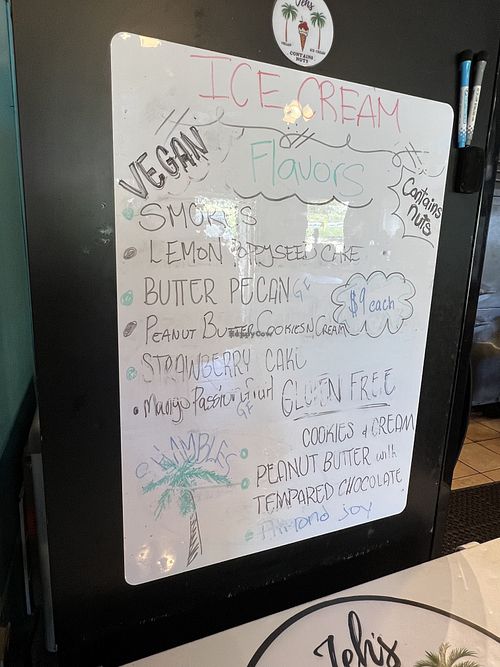 Jeh's
VEGAN
ICE CREAM
CONTAINS
NUTS
ICE CREAM
VEGAN
Flavors
Contains
nuts
SMORES
LEMON POPPYSEED CAKE
BUTTER PECAN GF
$9 each
PEANUT BUTTER COOKIES N CREAM
STRAWBERRY CAKE
Mango Passion Fruit
GF
GLUTEN FREE
COOKIES & CREAM
PEANUT BUTTER with
TEMPARED CHOCOLATE
Almond Joy
HappyCow
Jeh's